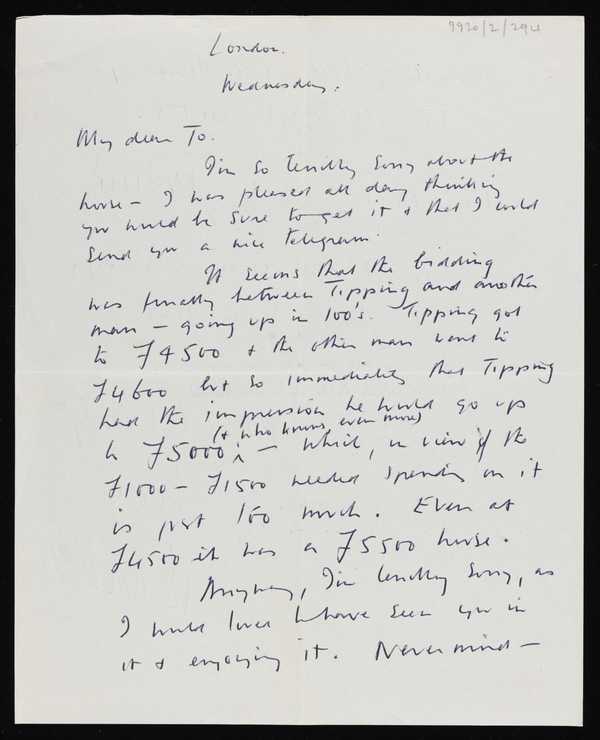 9920/2/294
London.
Wednesday.
My dear To.
I'm so terribly sorry about the
house – I was pleased all day thinking
you would be sure to get it & that I could
send you a nice telegram.
It seems that the bidding
was finally between Tipping and another
man – going up in 100's. Tipping got
to £4500 & the other man went to
£4600 but so immediately that Tipping
had the impression he would go up
(& who knows, even more)
to £5000 – which, in view of the
£1000 – £1500 needed spending on it
is just too much. Even at
£4500 it was a £5500 house.
Anyway, I'm terribly sorry, as
I would love to have seen you in
it & enjoying it. Never mind –